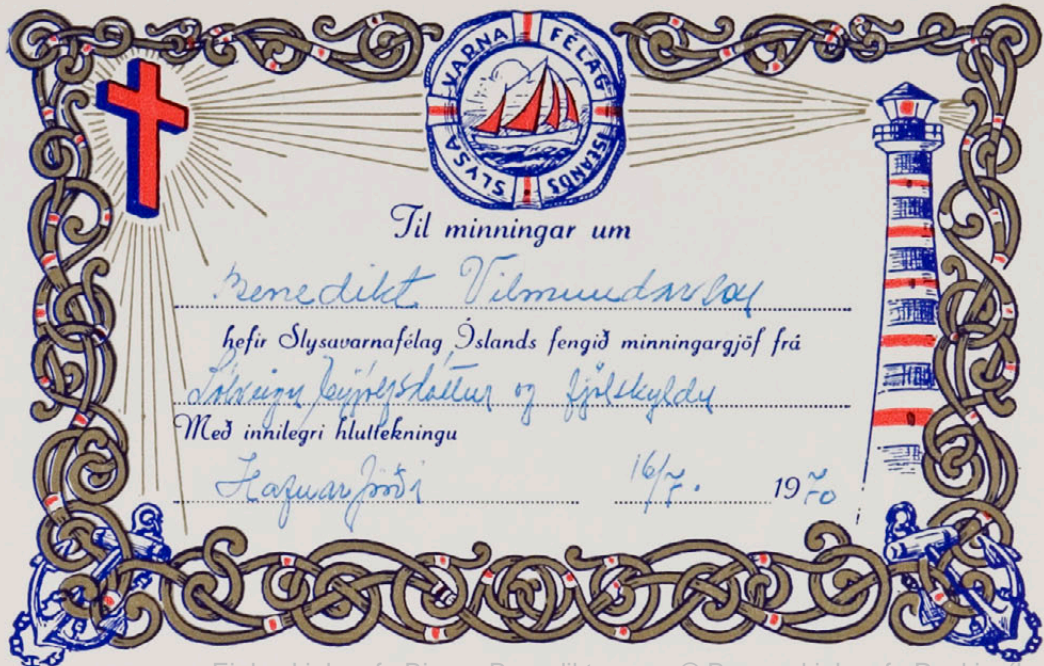 SLYSAVARNAFÉLAG ÍSLANDS
Til minningar um
Benedikt Vilmundarson
hefir Slysavarnafélag Íslands fengið minningargjöf frá
Sólveigu Eyjólfsdóttur og fjölskyldu
Með innilegri hluttekningu
Hafnarfirði 16/7. 1970